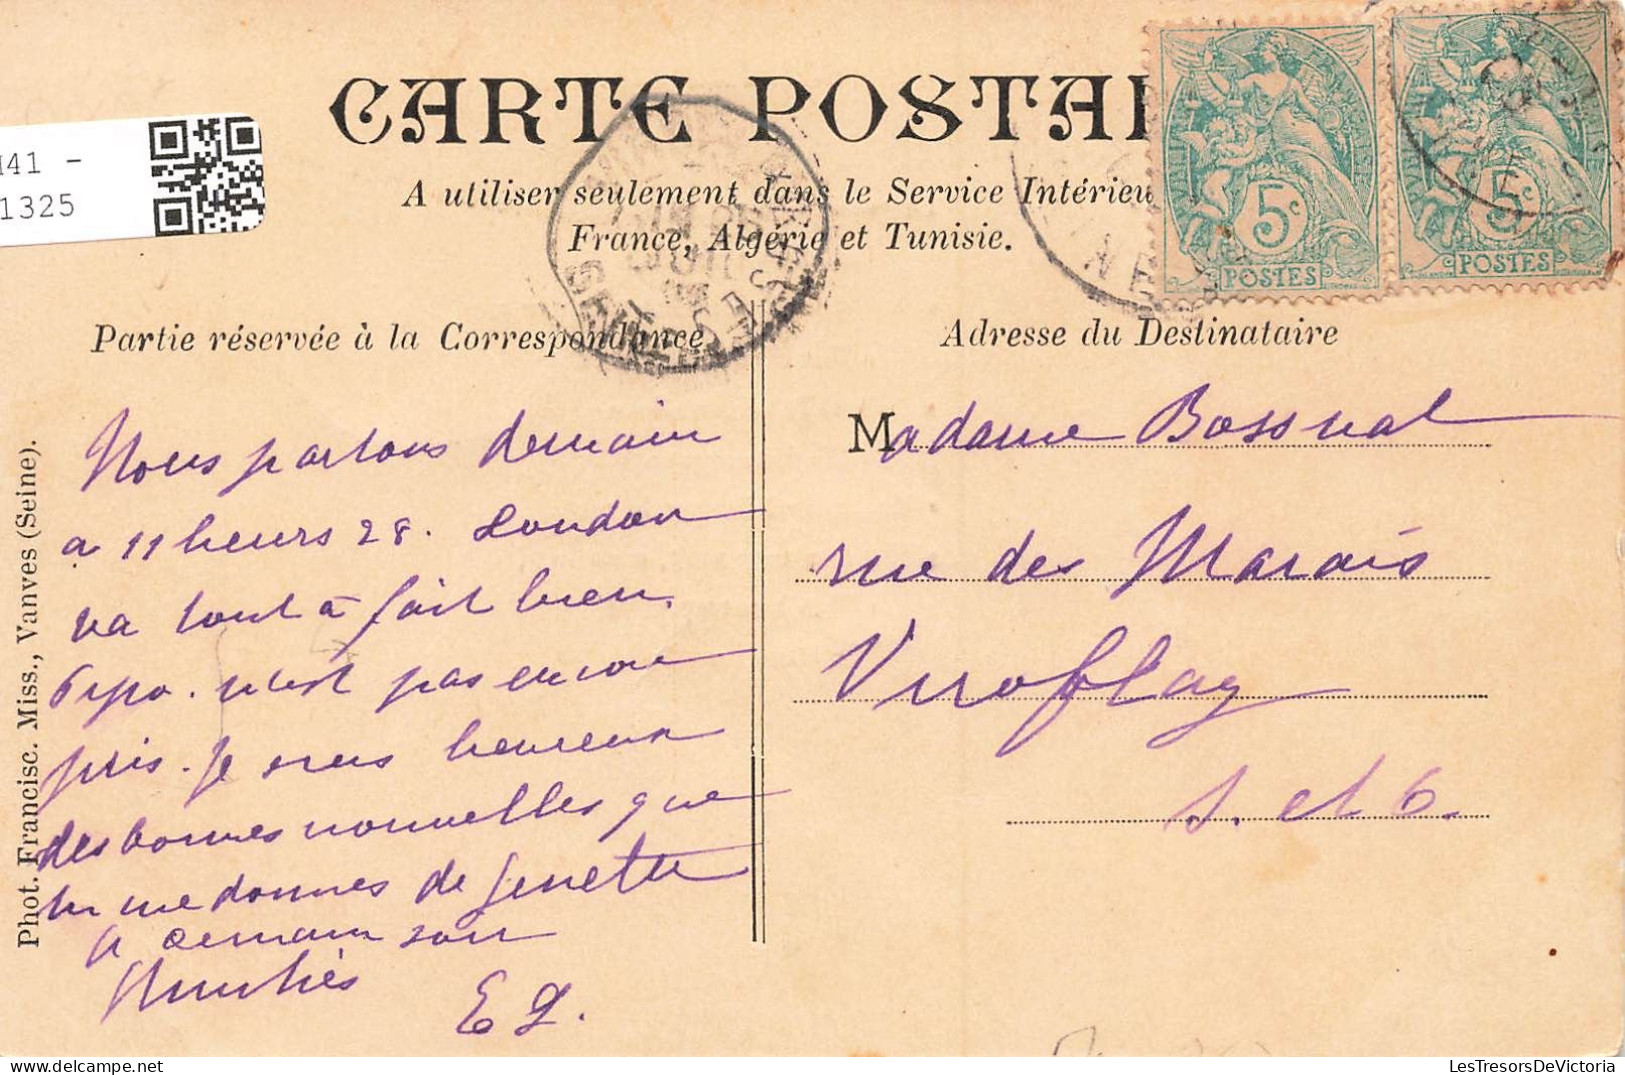 CARTE POSTAL
A utiliser seulement dans le Service Intérieu
France, Algérie et Tunisie.
Partie réservée à la Correspondance
Nous partons demain
a 11 heures 28. London
va tout à fait bien.
n'est pas encore
pris. Je suis heureux
des bonnes nouvelles que
tu me donnes de Ginette
A demain soir
Amitiés
E L.
Adresse du Destinataire
Madame Bossuat
rue des Marais
Viroflay
S. et O.
Phot. Francisc. Miss., Vanves (Seine).
5c
POSTES
5c
POSTES
M41 -
1325
LesTresorsDeVictoria.com